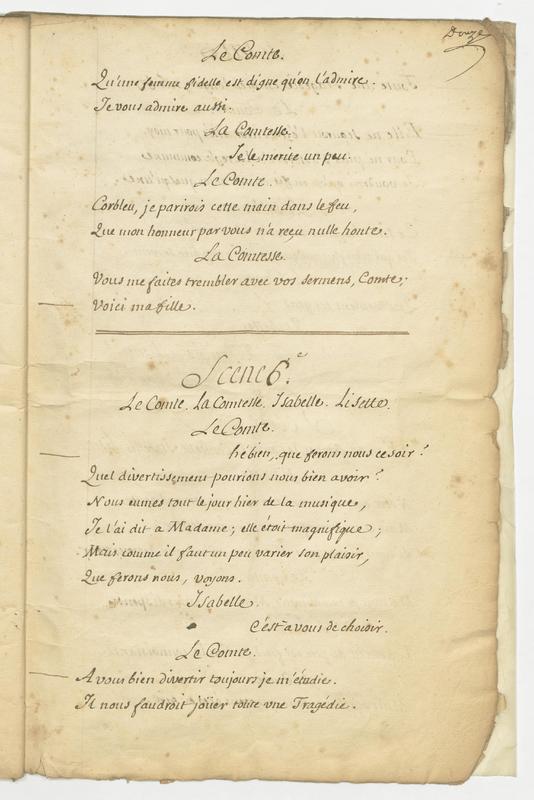 Douze
Le Comte.
Qu'une femme fidelle est digne qu'on l'admire.
Je vous admire aussi.
La Comtesse.
Je le merite un peu.
Le Comte.
Corbleu, je parirois cette main dans le feu,
Que mon honneur par vous n'a reçu nulle honte.
La Comtesse.
Vous me faites trembler avec vos sermens, Comte;
Voici ma fille.
Scene 6.e
Le Comte. La Comtesse. Isabelle. Lisette.
Le Comte.
hé bien, que ferons nous ce soir?
Quel divertissement pourions nous bien avoir?
Nous eumes tout le jour hier de la musique,
Je l'ai dit a Madame; elle étoit magnifique;
Mais comme il faut un peu varier son plaisir,
Que ferons nous, voyons.
Isabelle.
C'est a vous de choisir.
Le Comte.
A vous bien divertir toujours je m'étudie.
Il nous faudroit joüer toute une Tragédie.